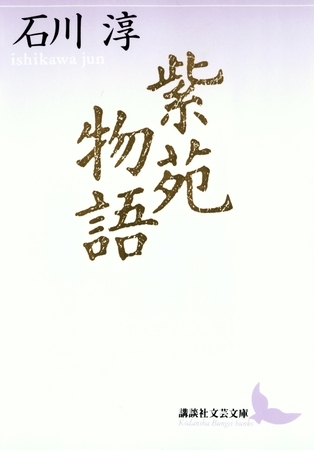 石川 淳
ishikawa jun
紫苑
物語
講談社文芸文庫
Kodansha Bungei bunko